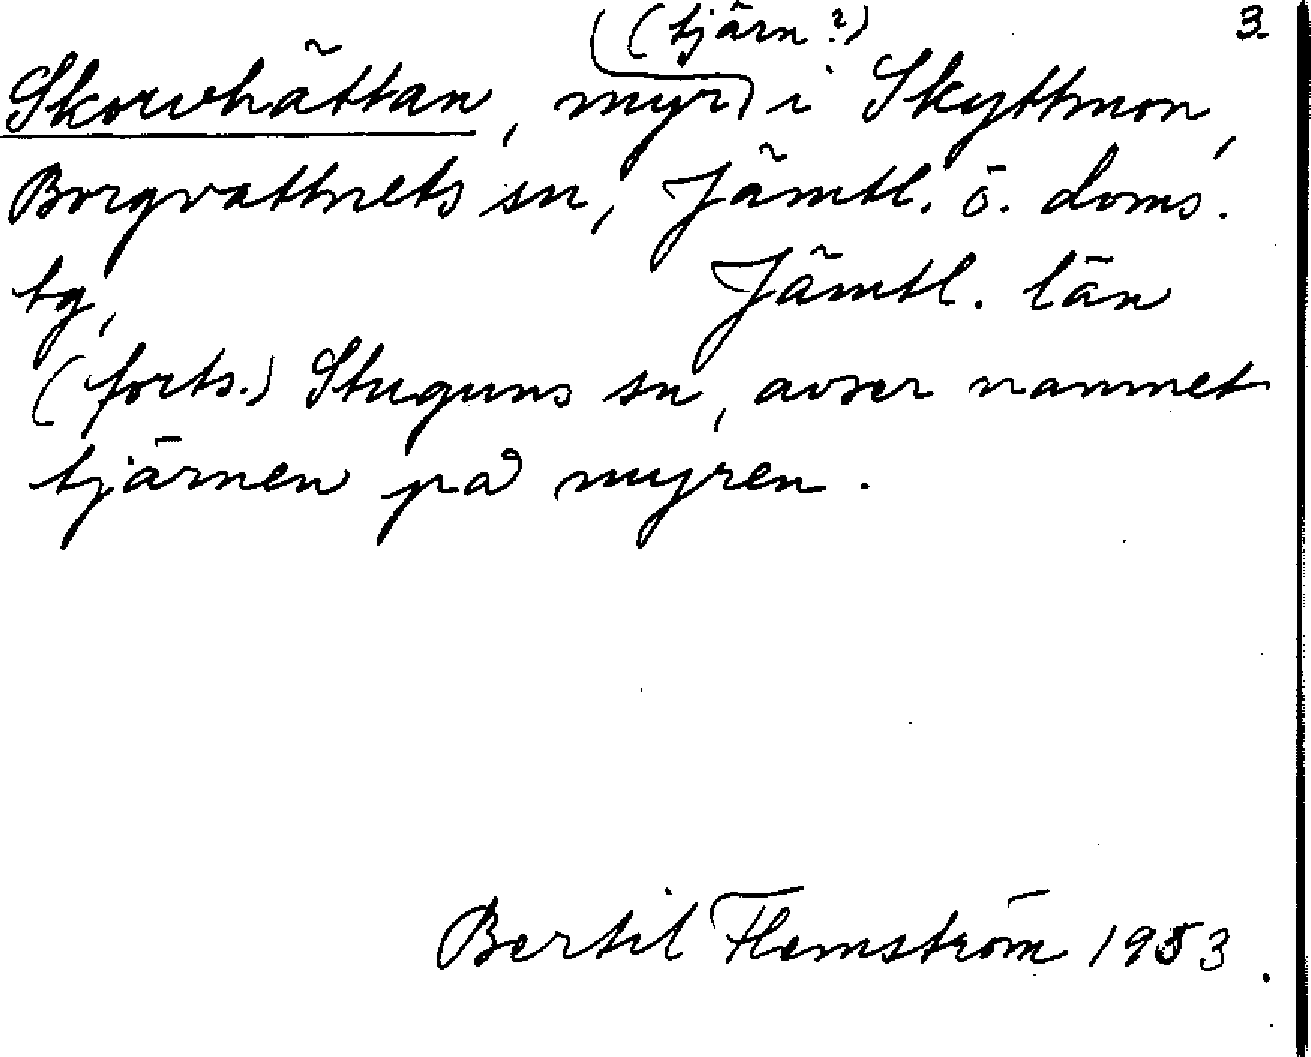 (tjärn?) 3.
Skorvhättan, myr) i Skyttmon,
Borgvattnets sn, Jämtl. ö. doms.
tg, Jämtl. län
(forts.) Stuguns sn, avser namnet
tjärnen på myren.
Bertil Flemström 1953.